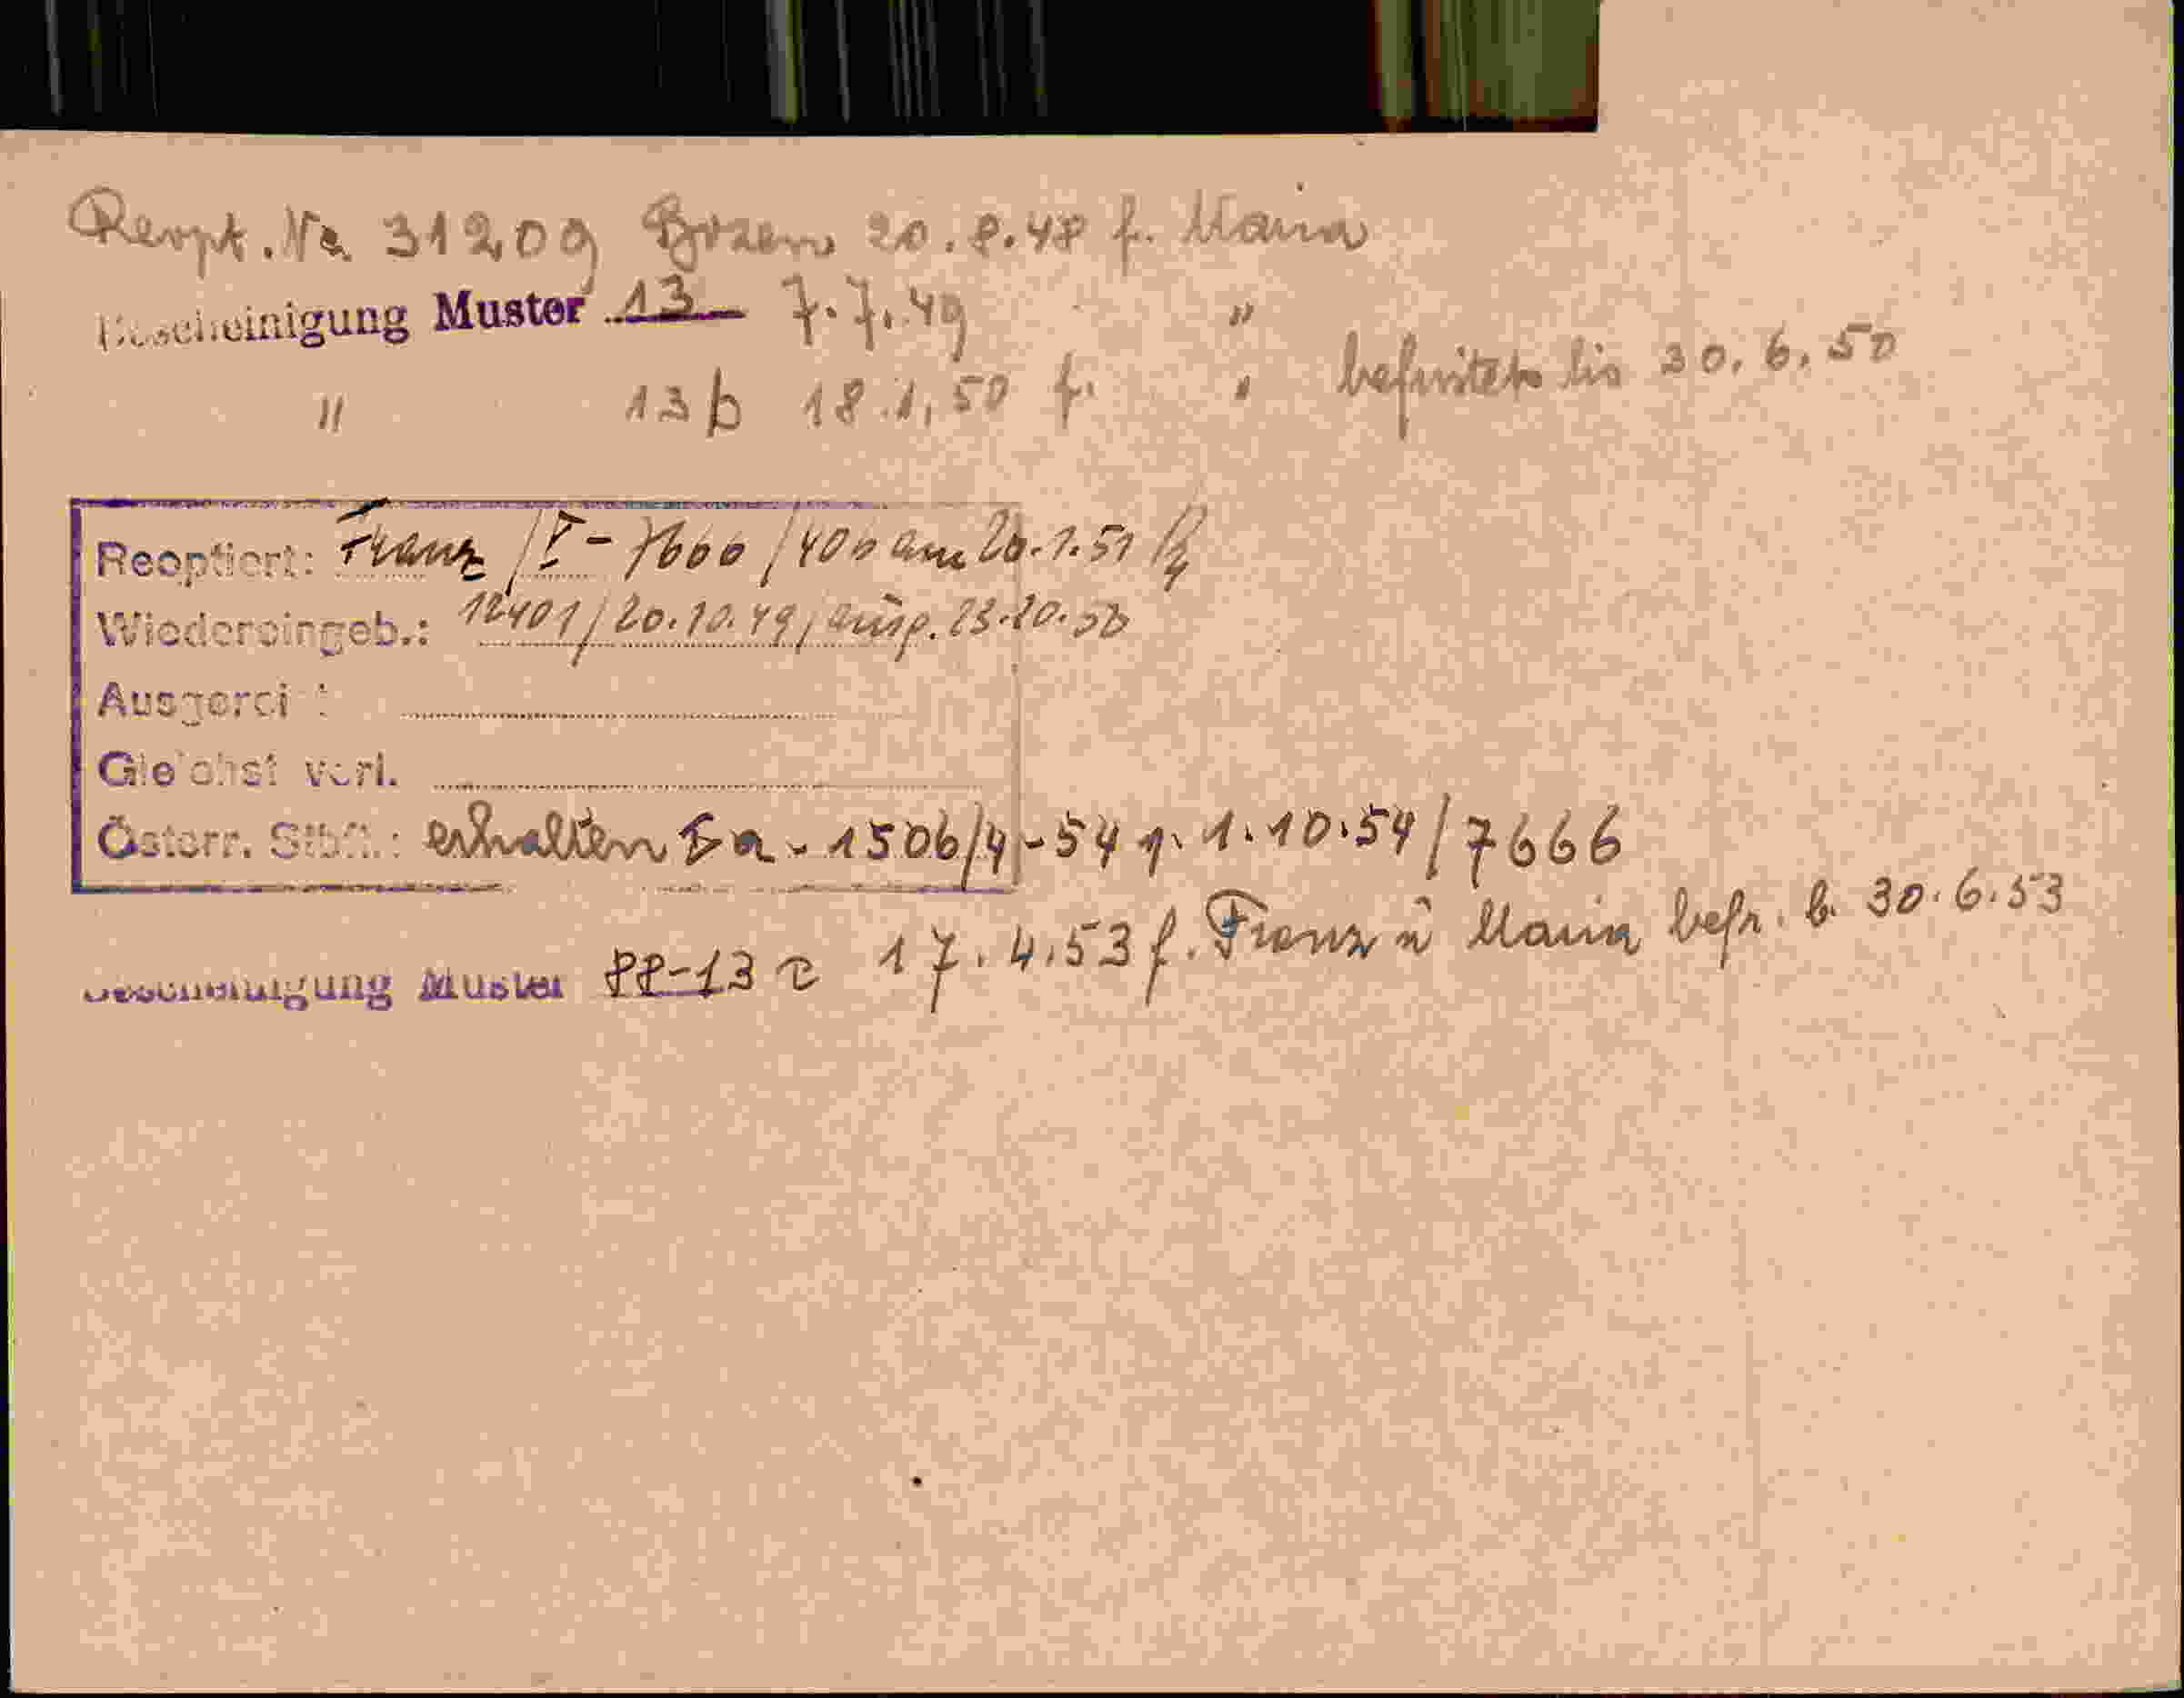 Reopt. No 31209 Bozen 20.8.48 f. Maria
Bescheinigung Muster 13 7.7.49 "
" 13b 18.1.50 f. " befristet bis 30.6.50
Reoptiert: Franz /I-7666/ am 20.1.51
Wiedereingeb.: 12401/20.10.49/ausg. 23.10.50
Ausgereist:
Gleichst verl.
Österr. Stbft.: erhalten Ia-1506/4-54 v. 1.10.54/7666
Bescheinigung Muster PP-13 c 17.4.53 f. Franz u Maria befr. b. 30.6.53